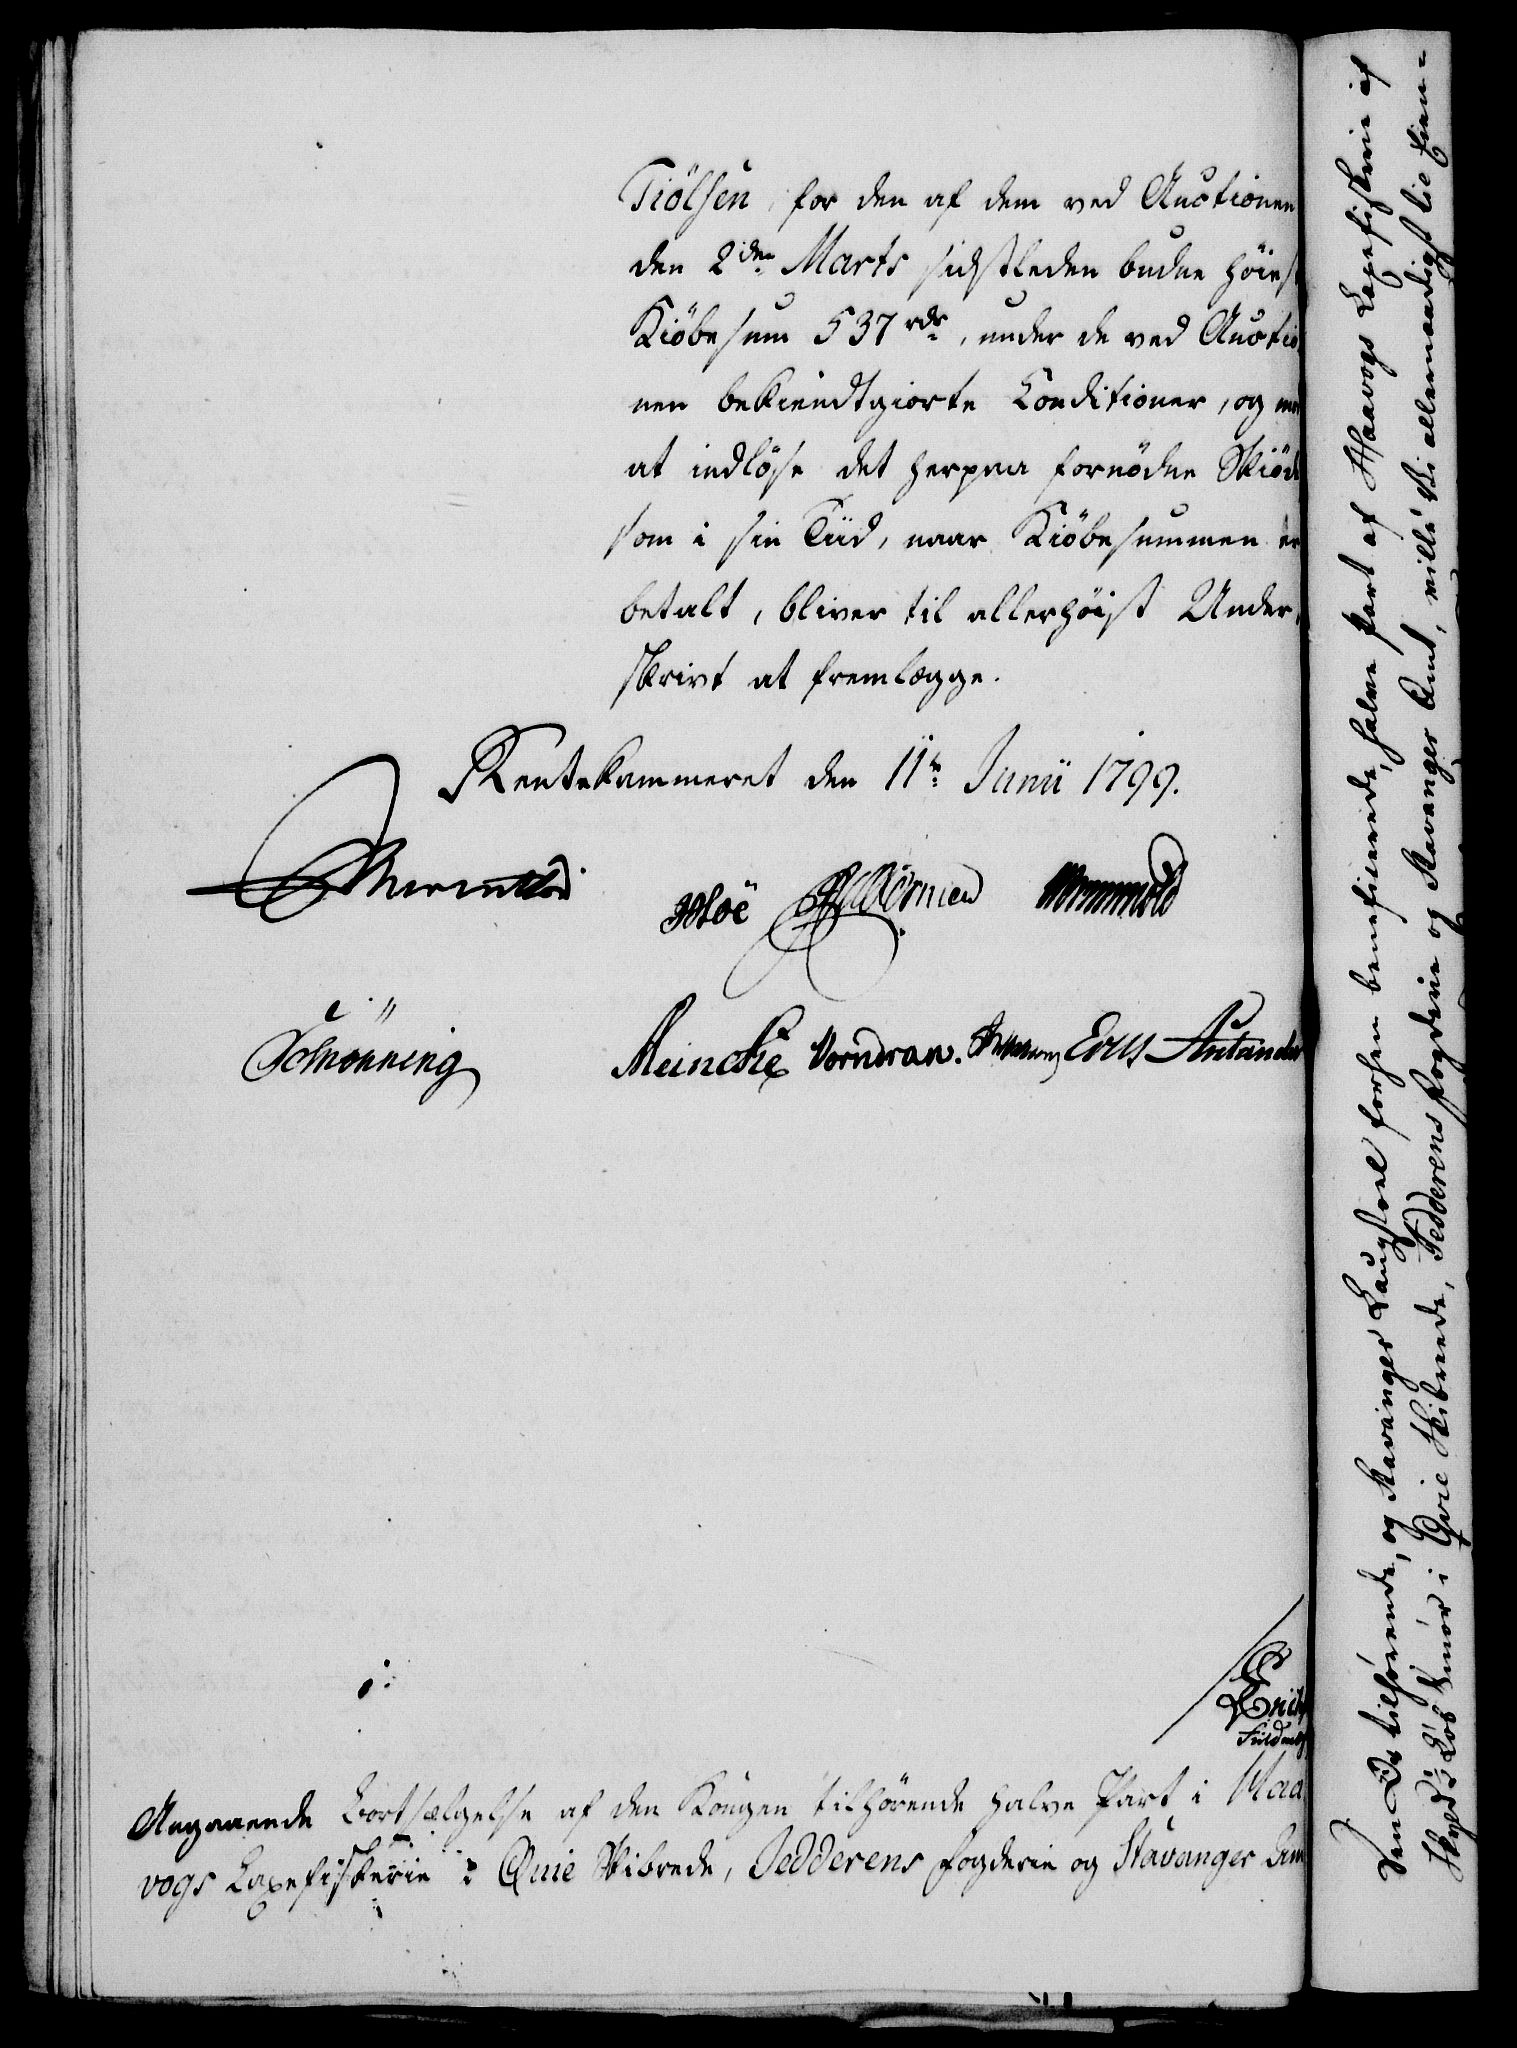 Tiölsen, for den af dem ved Auctionen
den 2den Marts sidstleden budne höies
Kiöbesum 537 rdr, under de ved Auctio
nen bekiendtgiorte Conditioner, og
at indlöse det herpaa fornödne Skiöde
som i sin Tiid, naar Kiöbesummen er
betalt, bliver til allerhöist Under-
skrivt at fremlægge.
Rentekammeret den 11te Junii 1799.
Hoë Wormskiold
Schönning Meincke Vorndran.
Angaaende Bortsælgelse af den Kongen tilhörende halve Part i Haa
vogs Laxefiskerie i Qvie Skibrede, Jedderens Fogderie og Stavanger Am
Den Os tilhörende, og Stavanger Laugstoel forhen beneficerede, halve Part af Haavogs Laxefiskerie af
Skyld 1 Löb Smör i Qvie Skibrede, Jedderens Fogderie og Stavanger Amt, ville Vi allernaadigst